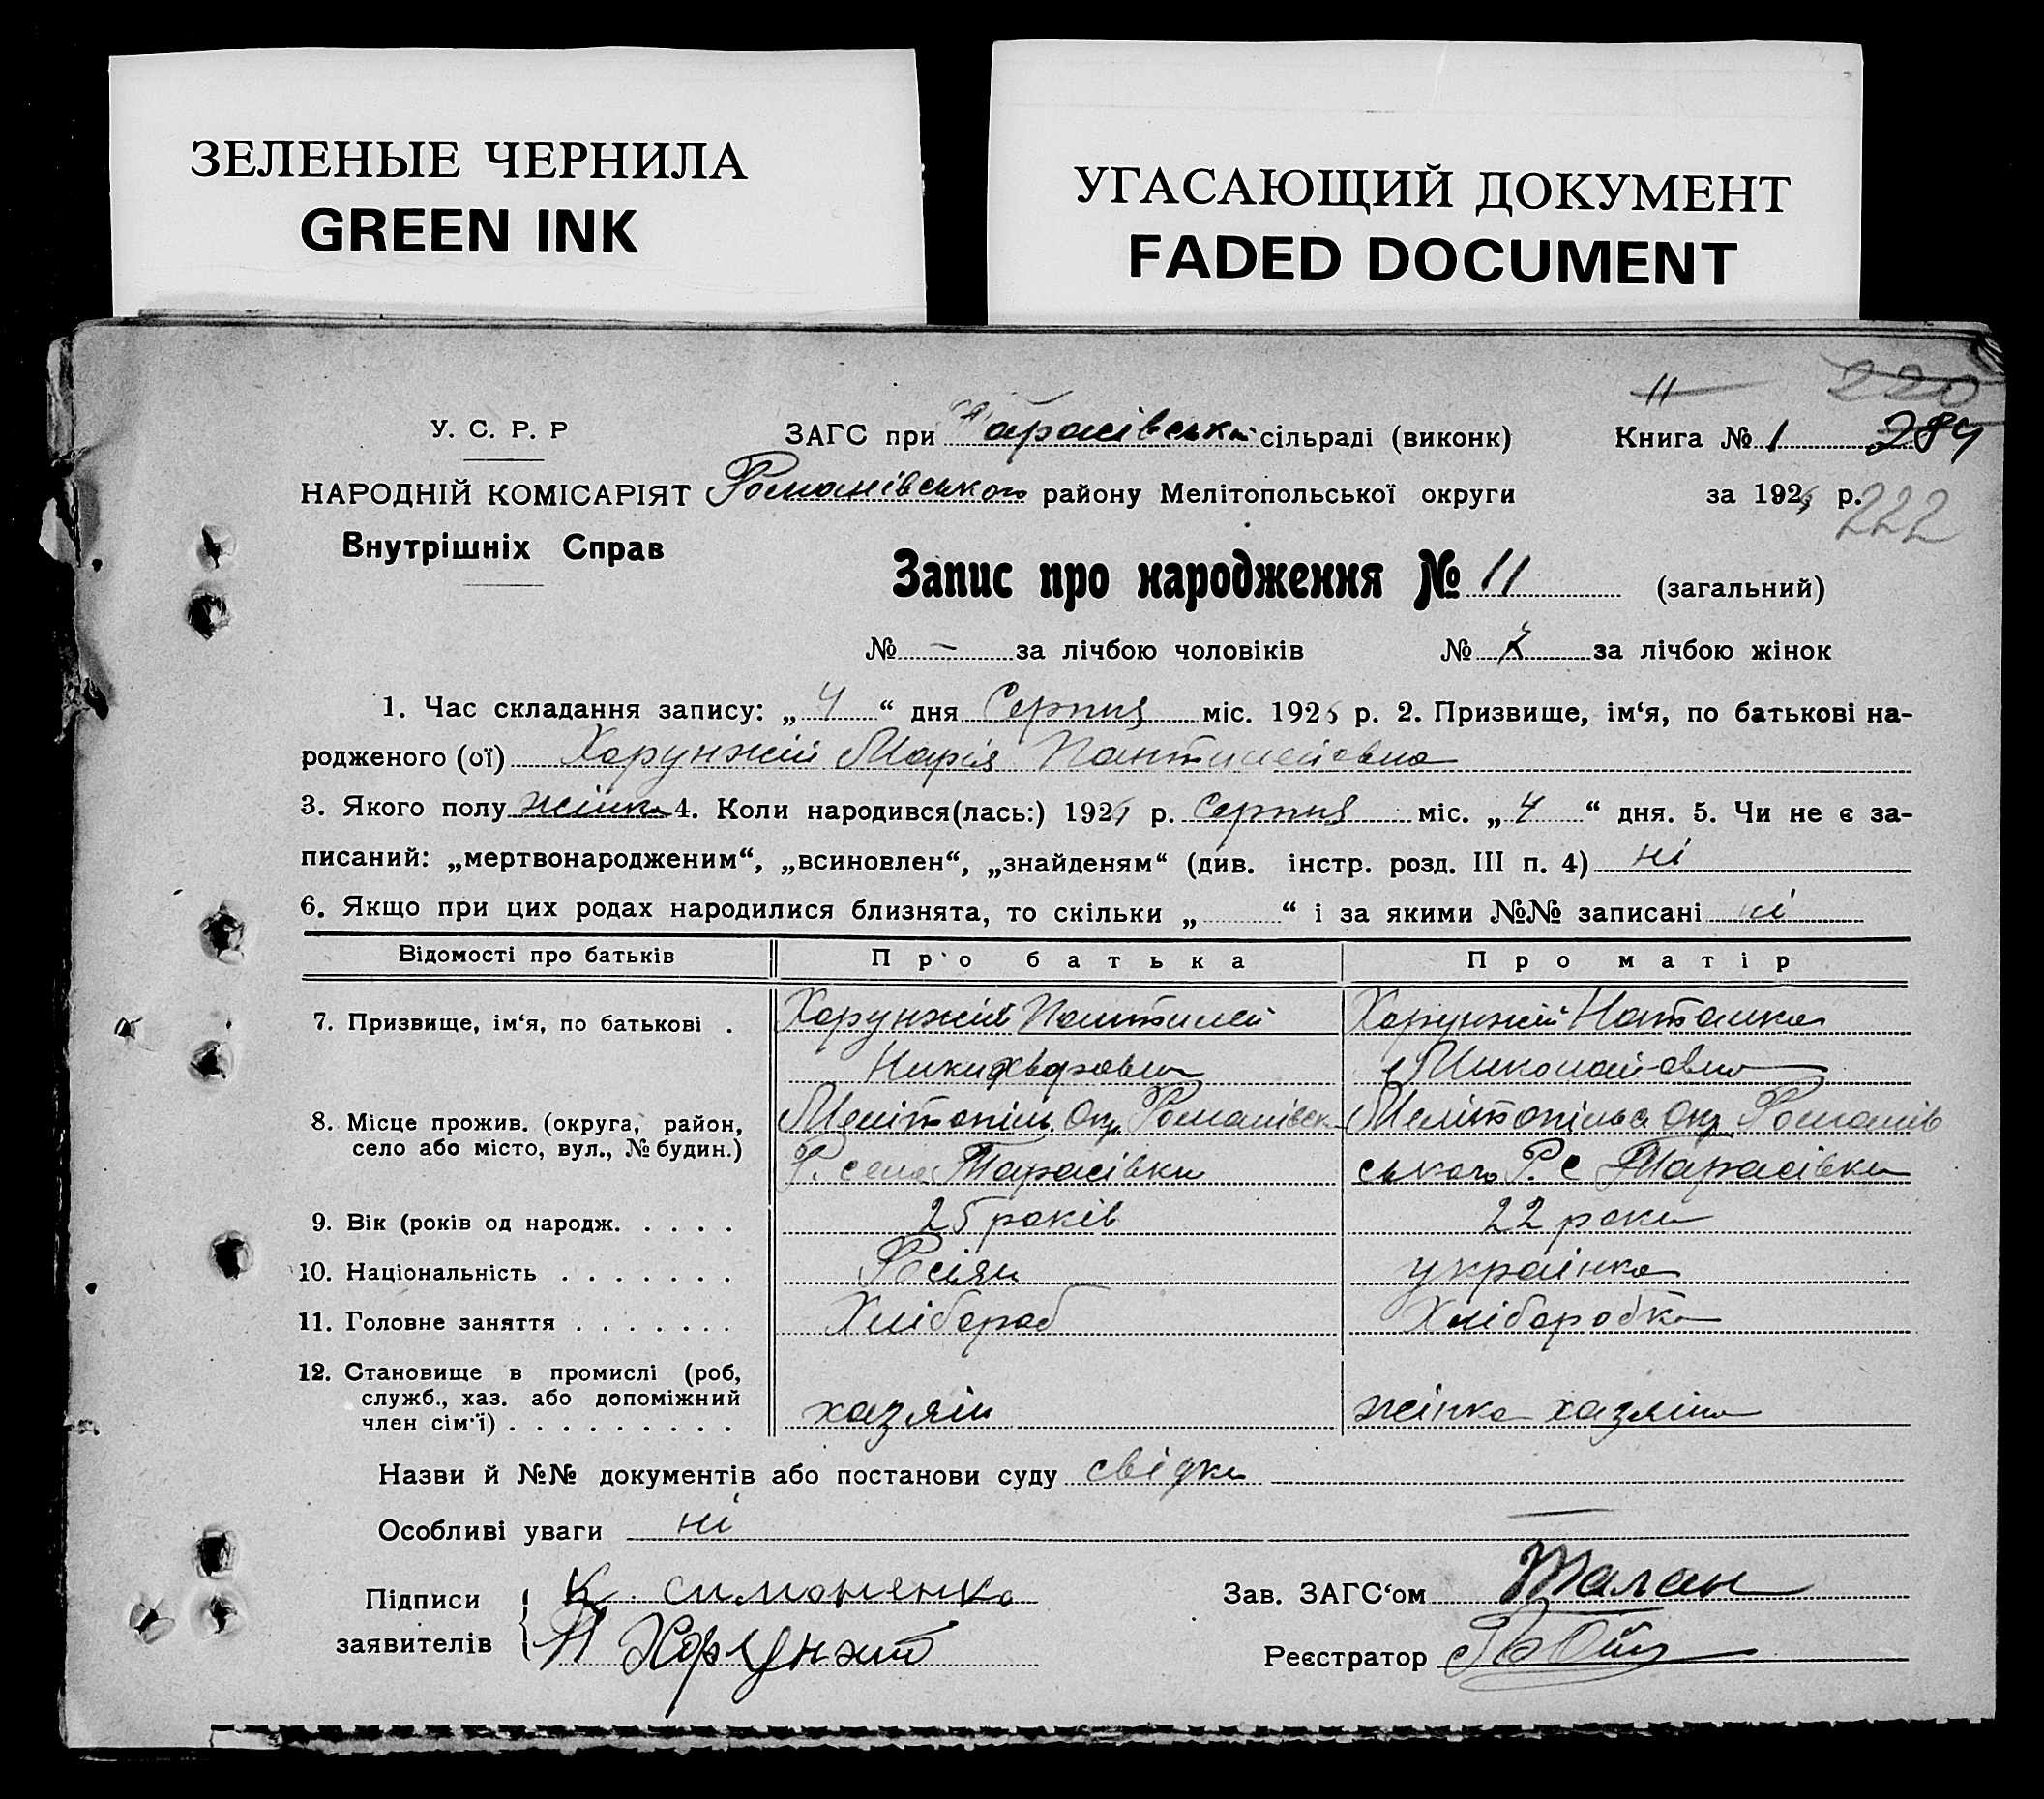 ЗЕЛЕНЫЕ ЧЕРНИЛА
GREEN INK
УГАСАЮЩИЙ ДОКУМЕНТ
FADED DOCUMENT
11 220
У. С. Р. Р ЗАГС при Тарасівській сільраді (виконк) Книга № 1 284
НАРОДНІЙ КОМІСАРІЯТ Романівського району Мелітопольської округи за 192 р. 222
Внутрішніх Справ
Запис про народження № 11 (загальний)
№ – за лічбою чоловіків № за лічбою жінок
1. Час складання запису: „ 4 “ дня Серпня міс. 192 р. 2. Призвище, ім‘я, по батькові на-
родженого (ої) Харунжий Марія Пантилейовна
3. Якого полу жінка 4. Коли народився(лась:) 192 р. Серпня міс. „ 4 “ дня. 5. Чи не є за-
писаний: „мертвонародженим“, „всиновлен“, „знайденям“ (див. інстр. розд. III п. 4) ні
6. Якщо при цих родах народилися близнята, то скільки „ “ і за якими №№ записані ні
Відомості про батьків Про батька Про матір
7. Призвище, ім‘я, по батькові . Харунжий Пантилей Харунжий Наталка
Никихворович Миколайовна
8. Місце прожив. (округа, район, Мелітопіль. Окр. Романівськ Мелітопільс. Окр. Романів
село або місто, вул., № будин.) Р. села Тарасівки ського Р. с Тарасівки
9. Вік (років од народж. . . . . 25 років 22 роки
10. Національність . . . . . . . Росіян українка
11. Головне заняття . . . . . . . Хлібороб Хліборобка
12. Становище в промислі (роб,
служб., хаз. або допоміжний хазяїн жінка хазяїна
член сім‘ї) . . . . . . . . .
Назви й №№ документів або постанови суду свідки
Особливі уваги ні
Підписи К. Симоненко Зав. ЗАГС‘ом Талан
заявителів П Харунжий Реєстратор